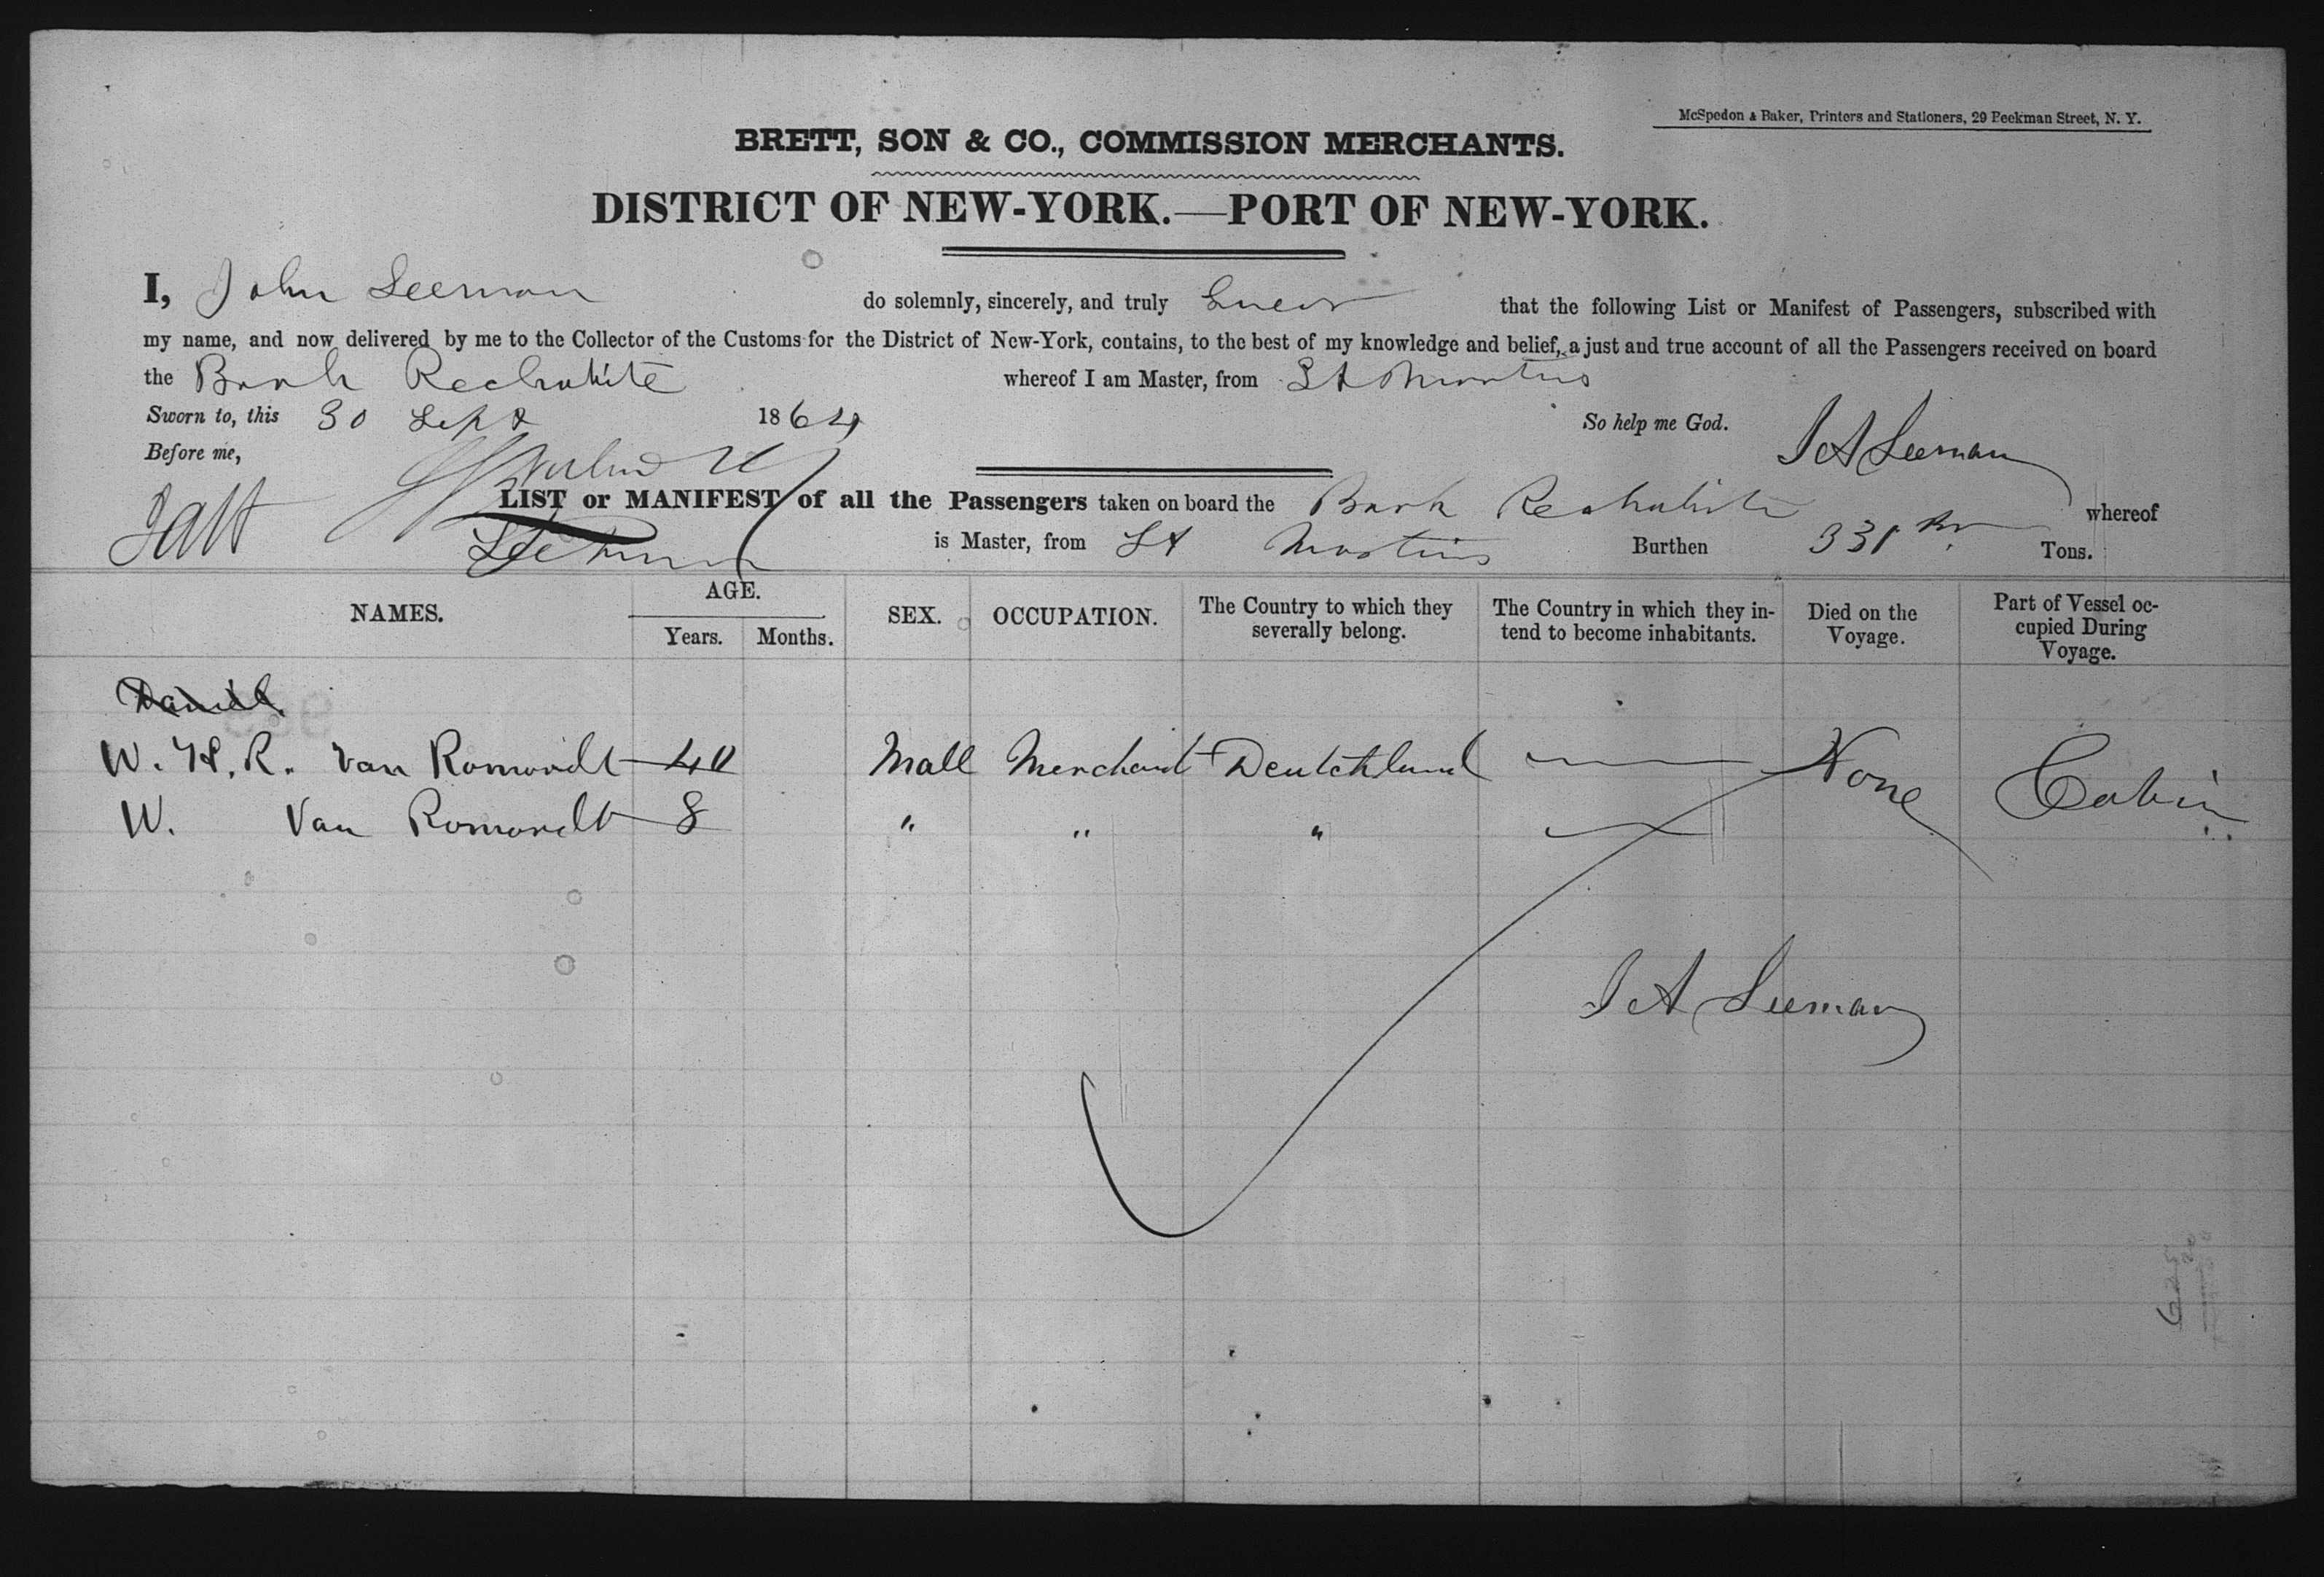 McSpedon & Baker, Printers and Stationers, 29 Beekman Street, N. Y.
BRETT, SON & CO., COMMISSION MERCHANTS.
DISTRICT OF NEW-YORK.—PORT OF NEW-YORK.
I, John Leeman do solemnly, sincerely, and truly Swear that the following List or Manifest of Passengers, subscribed with
my name, and now delivered by me to the Collector of the Customs for the District of New-York, contains, to the best of my knowledge and belief, a just and true account of all the Passengers received on board
the Bark Rechabite whereof I am Master, from St Martins
Sworn to, this 30 Sept 1864 So help me God.
Before me, J A Leeman
LIST or MANIFEST of all the Passengers taken on board the Bark Rechabite whereof
is Master, from St Martins Burthen 331 Tons.
NAMES. AGE. SEX. OCCUPATION. The Country to which they severally belong. The Country in which they intend to become inhabitants. Died on the Voyage. Part of Vessel occupied During Voyage.
Years. Months.
Daniel
W. H. R. Van Romondt 40 Mall Merchant Deutchland None Cabin
W. Van Romondt 8 " " " "
J A Leeman